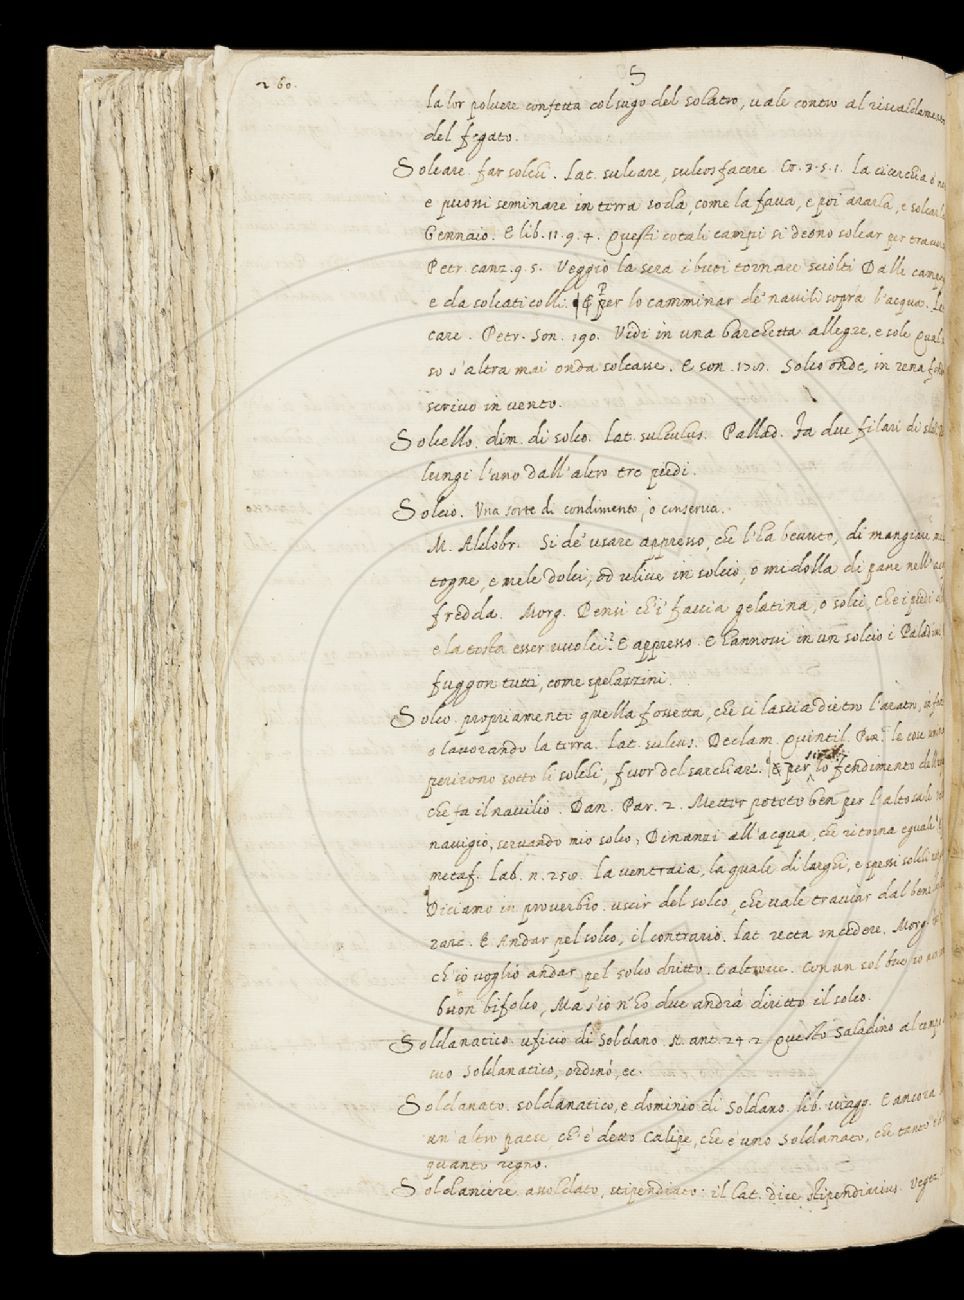 260.
S
la lor poluere confetta col sugo del solatro, uale contro al riscaldamento
del fegato.
Solcare. far solchi. Lat. sulcare, sulcos facere. Cr. 3. 5. 1. La cicerchia
e puossi seminare in terra soda, come la faua, e poi ararla, e solcarla
Gennaio. E lib. 11. 9. 4. Questi cotali campi si deono solcar per
Petr. canz. 9. 5. Veggio la sera i buoi tornare sciolti Dalle campagne
e da solcati colli. ¶ E per lo camminar de' nauili sopra l'acqua.
care. Petr. Son. 190. Vidi in una barchetta allegre, e sole
so s'altra mai onda solcasse. E son. Solco onde, in rena
scriuo in uento.
Solcello. dim. di solco. Lat. sulculus. Pallad. Fa due filari di
lungi l'uno dall'altro tre piedi.
Solcio. Una sorte di condimento, o conserua.
M. Aldobr. Si de' usare appresso, che l'ha beuuto, di mangiare
togne, e mele dolci, ed uliue in solcio, o midolla di pane nell'
fredda. Morg. Densi ch'i' faccia gelatina, o solci, Che i piedi
e la testa esser uuolci? E appresso. E hannosi in un solcio i Paladini
fuggon tutti, come spelazzini.
Solco. propriamente quella fossetta, che si lascia dietro l'aratro,
o lauorando la terra. Lat. sulcus. Declam. Quintil. P. le cose
perirono sotto li solchi, fuor del sarchiare. ¶ E per lo fendimento dell'
che fa il nauilio. Dan. Par. 2. Metter potete ben per l'alto sale
nauigio, seruando mio solco, Dinanzi all'acqua, che ritorna eguale.
metaf. Lab. n. 250. La uentraia, la quale di larghi, e spessi solchi
Diciamo in prouerbio. uscir del solco, che uale trauiar dal bene
rare. E Andar pel solco, il contrario. Lat. recta incedere. Morg.
ch'io uoglio andar pel solco dritto. E altroue. Con un sol bue io non
buon bifolco, Ma s'io n'ho due andrà diritto il solco.
Soldanatico. uficio di Soldano. N. ant. 24. 2. Questo Saladino al tempo
suo Soldanatico, ordinò, ec.
Soldanato. soldanatico, e dominio di Soldano. lib. uiagg. E ancora
un altro paese, ch'è detto Calipe, che è uno Soldanato, che tanto
quanto regno.
Soldaniere. assoldato, stipendiato: il lat. dice stipendiarius. Veget.